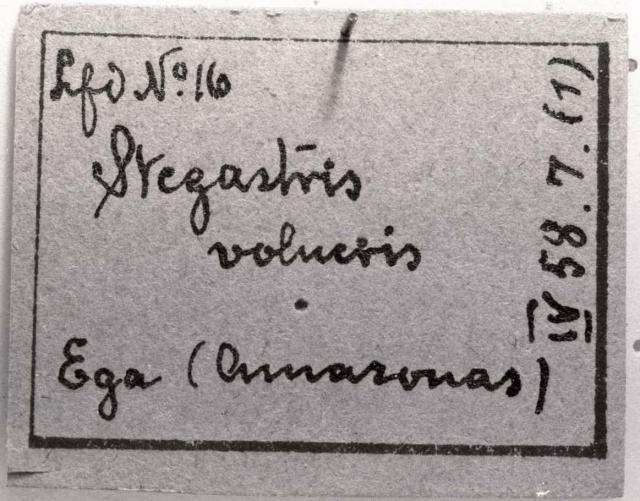 Lfd No 16
Stegastris
volucris
Ega (Amazonas)
IV 58.7.(1)